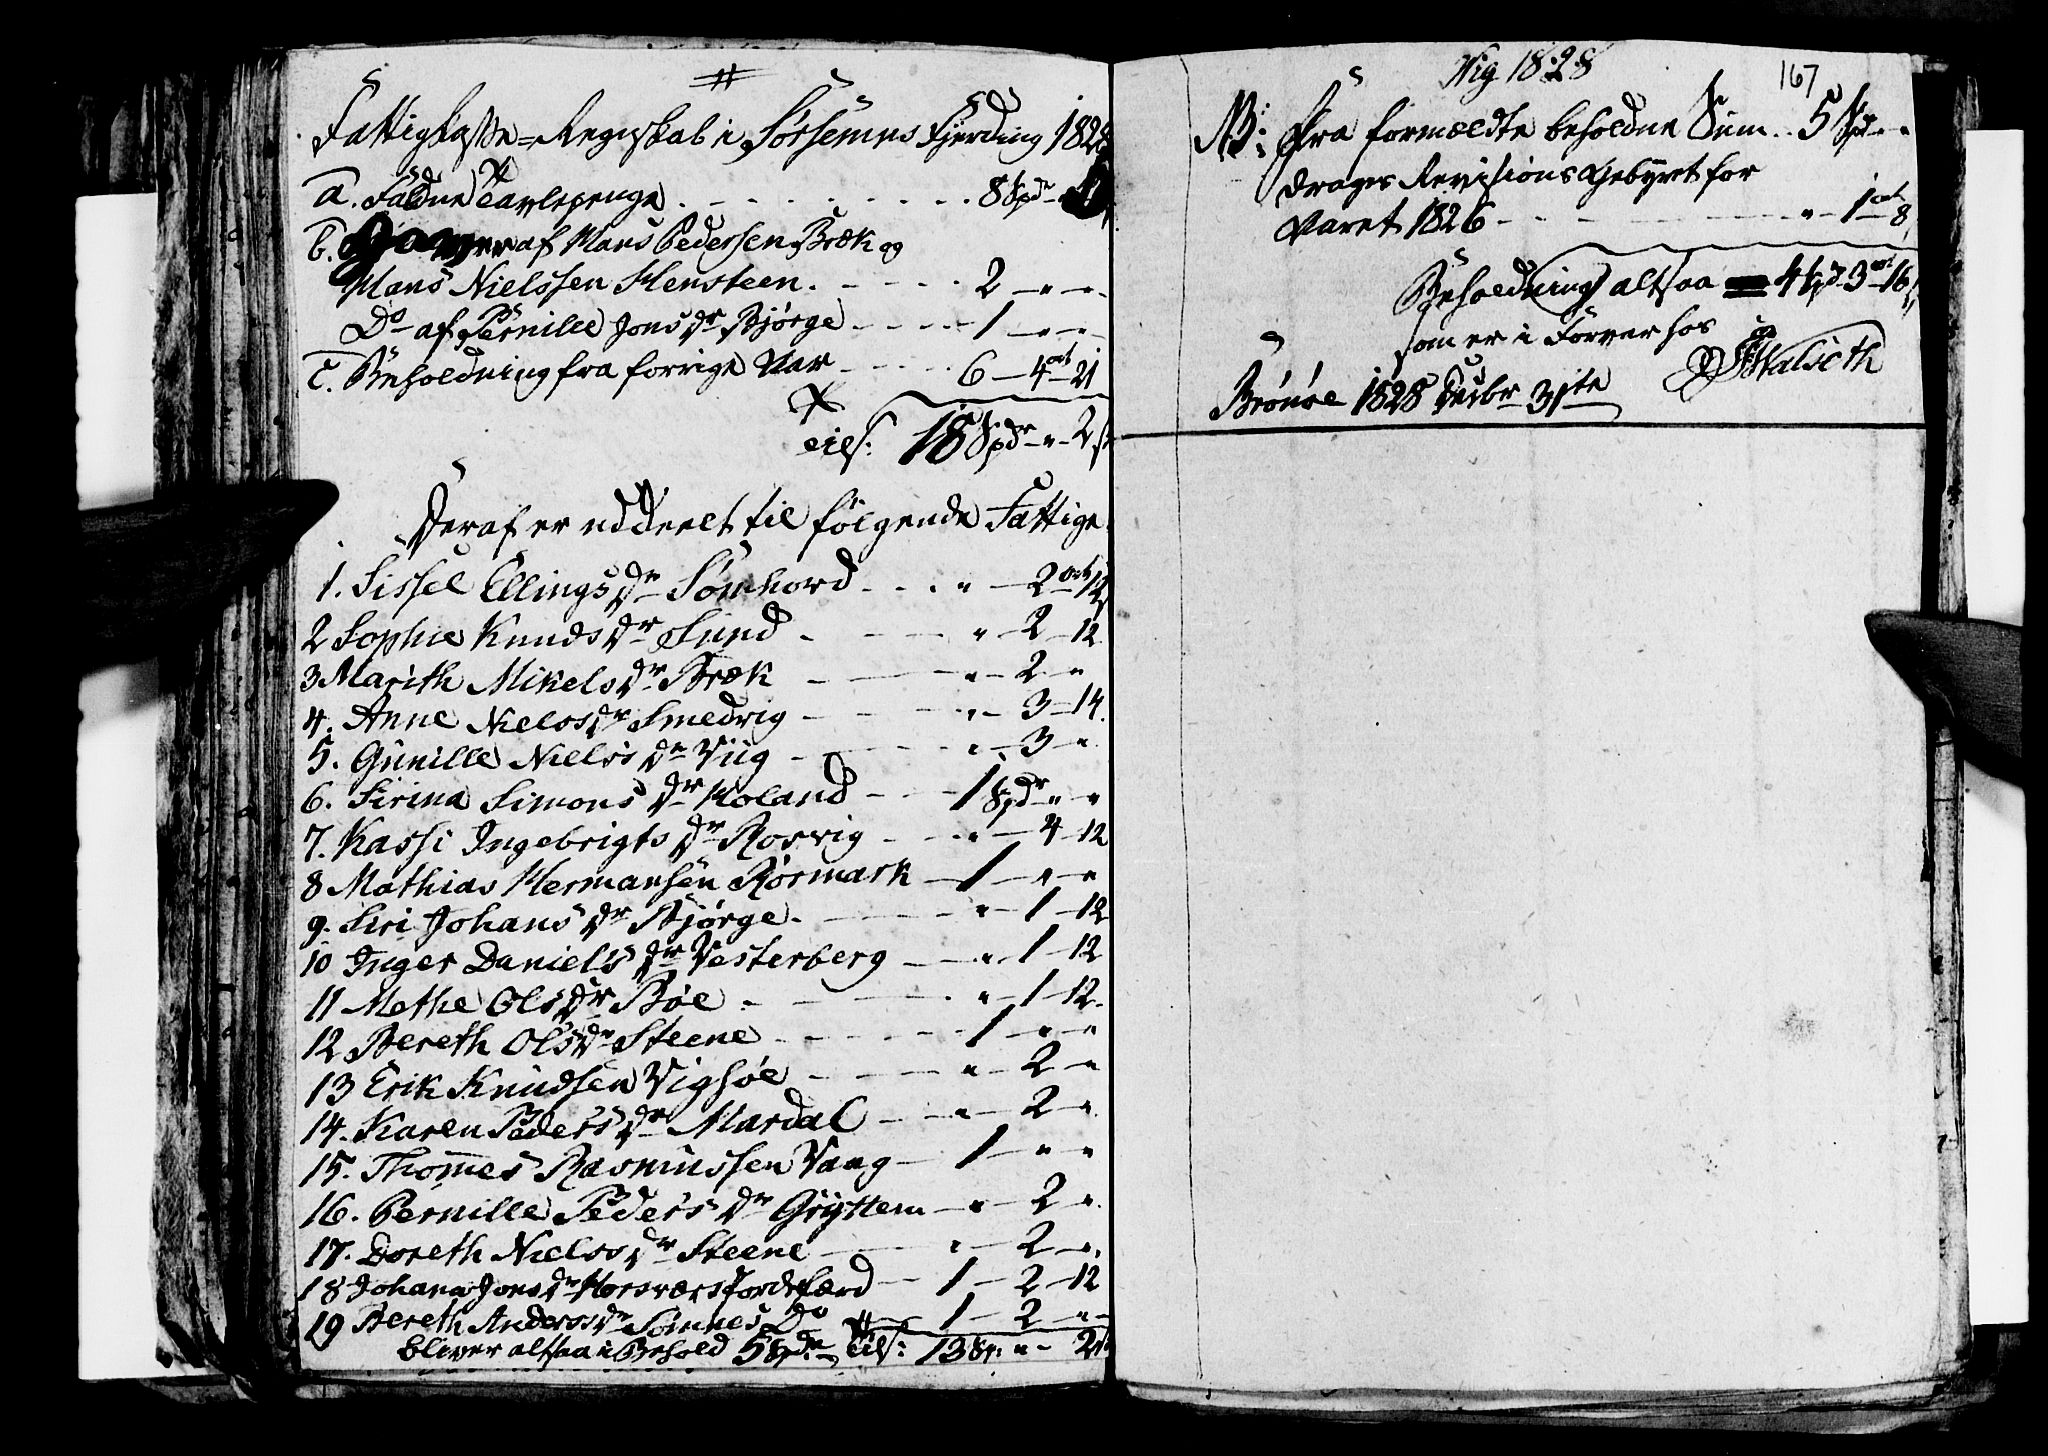 Fattigkasse=Regnskab i Sørsemnes Fjerding 1828
a. Faldne Tavlepenge . - - - - - 8 Spd
b. Gaver af Hans Pedersen Bræk og
Hans Nielssen Hensteen . - - - 2 - " - "
Do af Pernille Jonsdr Bjørge - - - 1 - " - "
c. Beholdning fra forrige Aar - - - 6 - 4 ort 21
Tils: 18 Spdr - " - 2 s
Deraf er uddeelt til følgende Fattige
1. Sissel Ellingsdr Sømhord - - - " - 2 ort 12
2 Sophie Knudsdr Sund - - - " - 2 - 12
3 Marith Mikelsdr Bræk - - - " - 2 - "
4. Anne Nielsdr Smedvig - - - " - 3 - 14.
5. Gunille Nielsdr Viig - - - " - 3 - "
6. Sirina Simonsdr Holand - - - 1 Spdr " - "
7. Kassi Ingebrigtsdr Rosvig - - - " - 4 - 12
8 Mathias Hermansen Rørmark - 1 - " - "
9. Siri Johansdr Bjørge - - - " - 1 - 12
10 Inger Danielsdr Vesterberg - - " - 1 - 12
11 Methe Olsdr Bøe - - - " - 1 - 12.
12 Bereth Olsdr Steene - - - 1 - " - "
13 Erik Knudsen Vigsøe - - - " - 2 - "
14. Karen Pedersdr Mardal - - " - 2 - "
15. Thomes Rasmussen Vaag - 1 - " - "
16. Pernille Pedersdr Gryttem - " - 2 - "
17. Doreth Nielsdr Steene - - " - 2 - "
18 Johana Jonsdr Horsværs Jordefærd - 1 - 2 - 12
19 Bereth Andersdr Sømnes Do - 1 - 2 - " -
bliver altsaa i Behold 5 Spdr - Tils: 13 Sp: " - 2 s
Vig 1828
167
NB: Fra formældte beholdne Sum .. 5 Spd - " .
drages Revisions Gebyret for
Aaret 1826 - - - - " - 1 ort - 8
Beholdning altsaa 4 Spd - 3 ort - 16
som er i Forvar hos
Walseth
Brönöe 1828 Decbr 31te